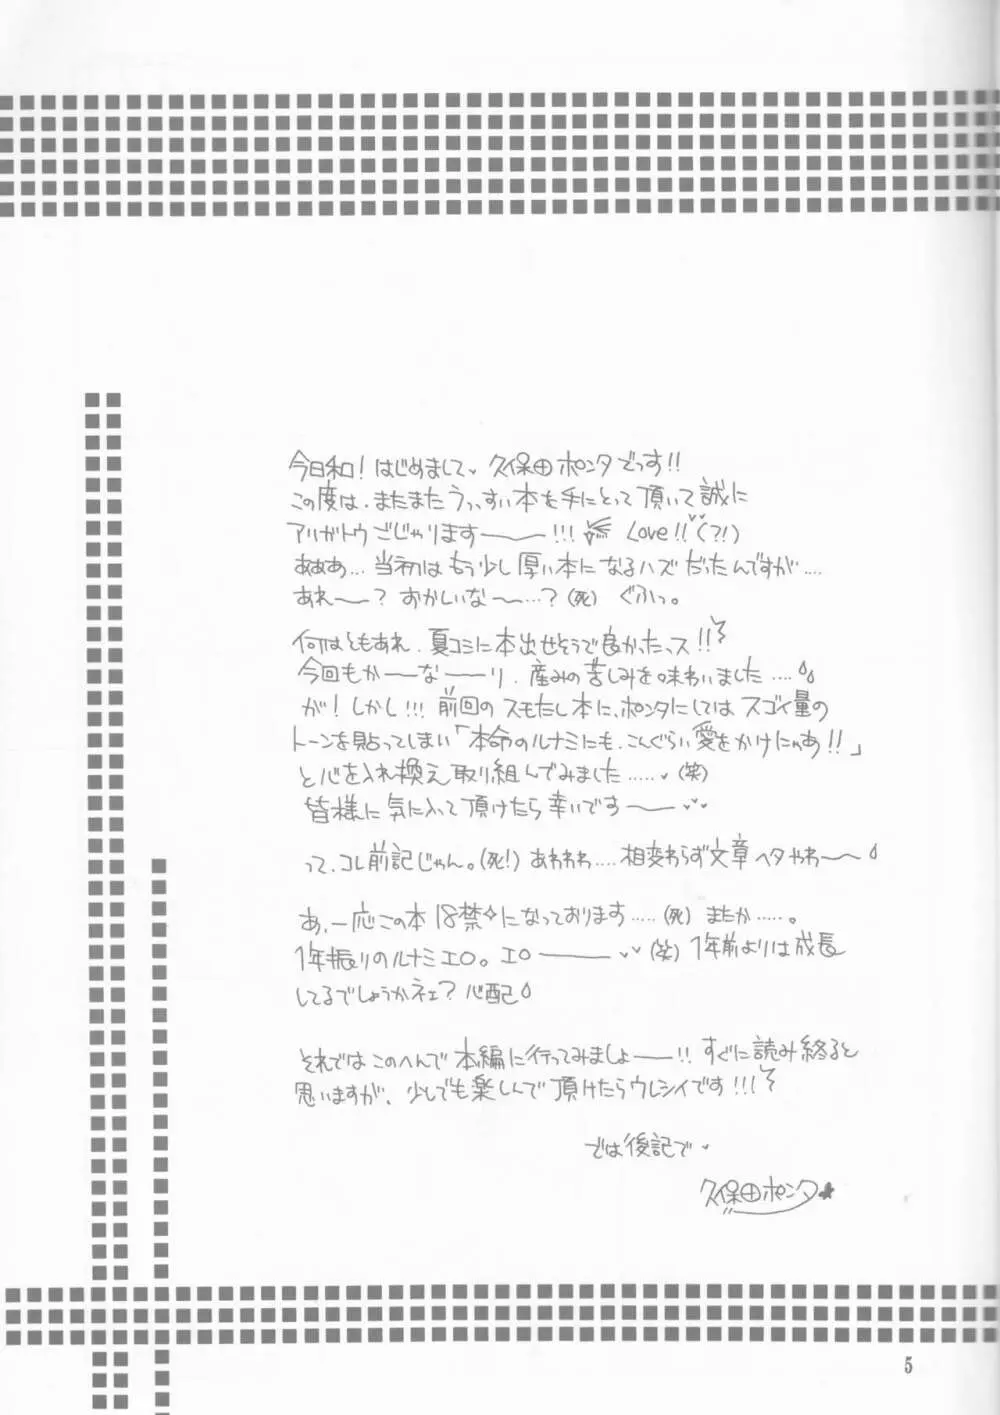 今日和! はじめまして♥ 久保田ポンタでっす!!
この度は、またまたうっっすい本を手にとって頂いて誠に
アリガトウござゃります――!!! Love!!(?!)
あああ… 当初はもう少し厚い本になるハズだったんですが….
あれ――? おかしいな――…? (死) ぐふっ。
何はともあれ、夏コミに本出せそうで良かったっス!!
今回もか――な――り、産みの苦しみを味わいました….
が! しかし!!! 前回のスモたし本に、ポンタにしてはスゴイ量の
トーンを貼ってしまい「本命のルナミにも、こんぐらい愛をかけにゃあ!!」
と心を入れ換え取り組んでみました…..♥ (笑)
皆様に気に入って頂けたら幸いです――♥♥
って、コレ前記じゃん。(死!) あわわわ…. 相変わらず文章ヘタやわ〜〜
あ、一応この本18禁になっております….. (死) またか…..。
1年振りのルナミエロ。エロ―――♥♥ (笑) 1年前よりは成長
してるでしょうかネェ? 心配
それではこのへんで本編に行ってみましょ――!! すぐに読み終ると
思いますが、少しでも楽しんで頂けたらウレシイです!!!
では後記で♥
久保田ポンタ★
5